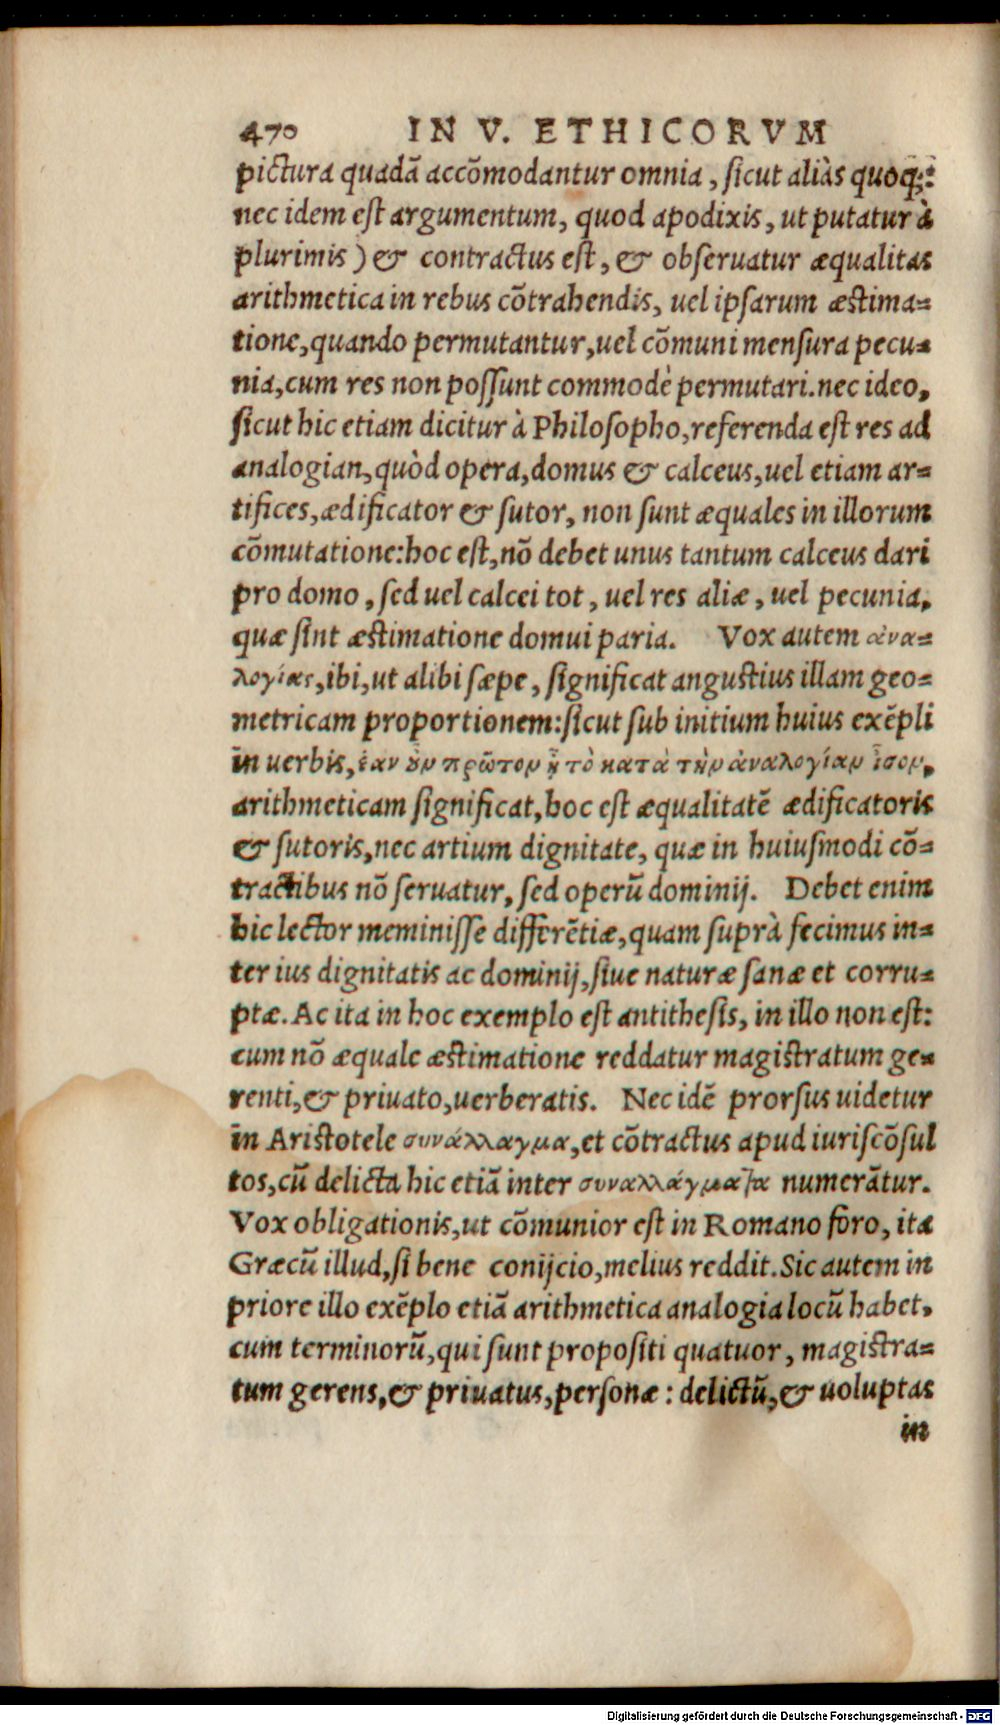 470 IN V. ETHICORVM
pictura quadã accõmodantur omnia, sicut aliàs quoq;:
nec idem est argumentum, quod apodixis, ut putatur à
plurimis) & contractus est, & obseruatur æqualitas
arithmetica in rebus cõtrahendis, uel ipsarum æstima=
tione, quando permutantur, uel cõmuni mensura pecu=
nia, cum res non possunt commodè permutari. nec ideo,
sicut hic etiam dicitur à Philosopho, referenda est res ad
analogian, quòd opera, domus & calceus, uel etiam ar=
tifices, ædificator & sutor, non sunt æquales in illorum
cõmutatione: hoc est, nõ debet unus tantum calceus dari
pro domo, sed uel calcei tot, uel res aliæ, uel pecunia,
quæ sint æstimatione domui paria. Vox autem ἀνα=
λογίας, ibi, ut alibi sæpe, significat angustius illam geo=
metricam proportionem: sicut sub initium huius exẽpli
in uerbis, ἐὰν οὖν πρῶτον ᾖ τὸ κατὰ τὴν ἀναλογίαν ἴσον,
arithmeticam significat, hoc est æqualitatẽ ædificatoris
& sutoris, nec artium dignitate, quæ in huiusmodi cõ=
tractibus nõ seruatur, sed operũ dominij. Debet enim
hic lector meminisse differẽtiæ, quam suprà fecimus in=
ter ius dignitatis ac dominij, siue naturæ sanæ et corru=
ptæ. Ac ita in hoc exemplo est antithesis, in illo non est:
cum nõ æquale æstimatione reddatur magistratum ge=
renti, & priuato, uerberatis. Nec idẽ prorsus uidetur
in Aristotele συνάλλαγμα, et cõtractus apud iuriscõsul
tos, cũ delicta hic etiã inter συναλλάγματα numerãtur.
Vox obligationis, ut cõmunior est in Romano foro, ita
Græcũ illud, si bene conijcio, melius reddit. Sic autem in
priore illo exẽplo etiã arithmetica analogia locũ habet,
cum terminorũ, qui sunt propositi quatuor, magistra=
tum gerens, & priuatus, personæ: delictũ, & uoluptas
in
Digitalisierung gefördert durch die Deutsche Forschungsgemeinschaft - DFG